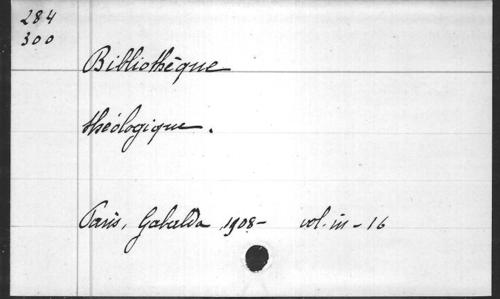 284
300
Bibliothèque
théologique.
Paris, Gabalda, 1908- vol. in-16